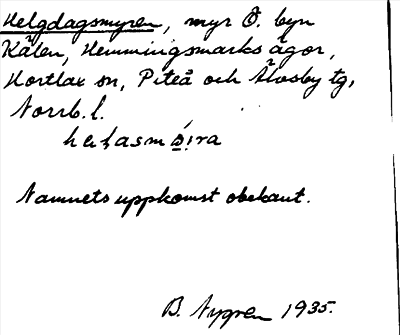 Helgdagsmyren, myr Ö. byn
Kålen, Hemmingsmarks ägor,
Hortlax sn, Piteå och Älvsby tg,
Norrb. l.
Namnets uppkomst obekant.
B. Nygren 1935.